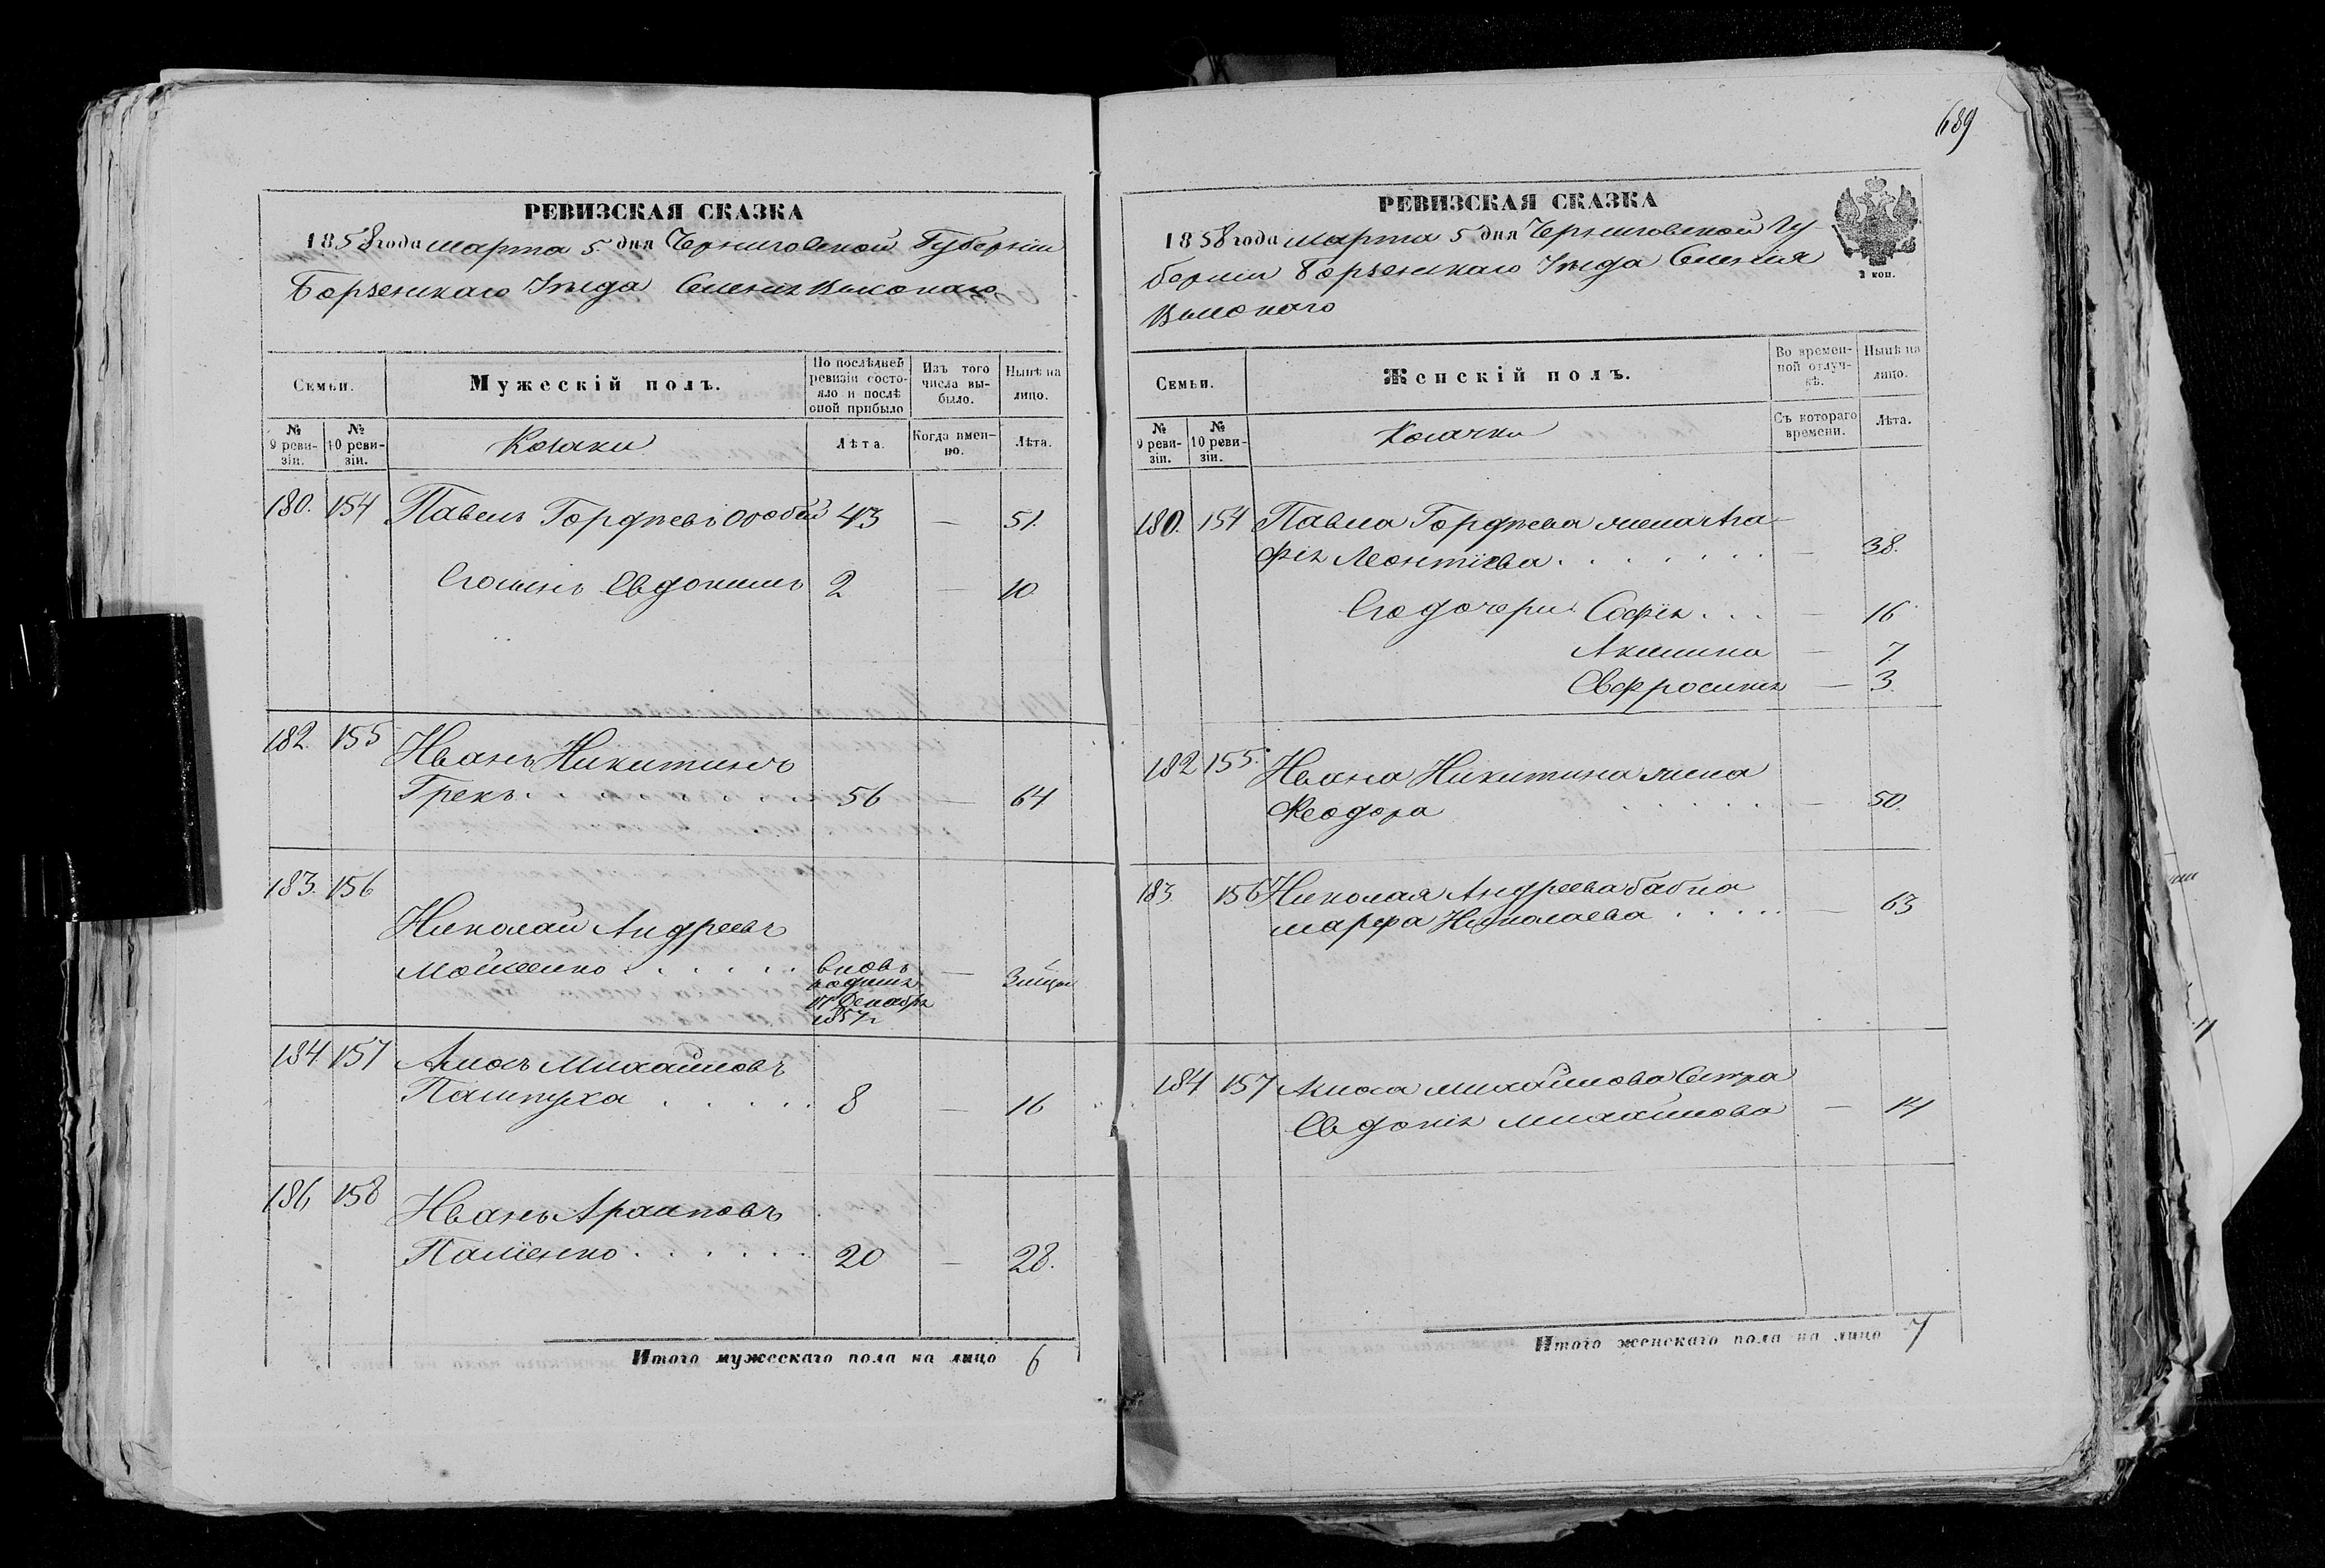 РЕВИЗСКАЯ СКАЗКА
1858 года марта 5 дня Черниговской Губерніи
Борзенскаго Уѣзда Селенія Высокаго
Семьи.
Мужескій полъ.
По послѣдней ревизіи состояло и послѣ оной прибыло
Изъ того числа выбыло.
Нынѣ на лицо.
№ 9 ревизіи.
№ 10 ревизіи.
Козаки
Лѣта.
Когда именно.
Лѣта.
180. 154 Павелъ Гордѣевъ 43 — 51.
Его сынъ Евдокимъ 2 — 10
182. 155 Иванъ Никитинъ
Грекъ 56 — 64
183. 156
Николай Андреевъ
Мойсеенко вновь — 3 мѣсяц
родился
17 Декабря
1857 г
184 157 Амосъ Михайловъ
Пашпуха 8 — 16
186 158 Иванъ Архиповъ
Паліенко 20 — 28.
Итого мужескаго пола на лицо 6
689
РЕВИЗСКАЯ СКАЗКА
1858 года марта 5 дня Черниговской Гу-
берніи Борзенскаго Уѣзда Селенія
Высокаго
2 коп.
Семьи.
Женскій полъ.
Во временной отлучкѣ.
Нынѣ на лицо.
№ 9 ревизіи.
№ 10 ревизіи.
Козачки
Съ котораго времени.
Лѣта.
180. 154 Павла Гордѣева жена Ага-
фія Леонтіева — 38.
Его дочери Софія — 16
Акилина — 7
Евфросинія — 3.
182 155. Ивана Никитина жена
Феодора — 50.
183 156 Николая Андреева бабка
марфа Николаева — 63
184 157 Амоса михайлова Сестра
Евдокія михайлова — 14
Итого женскаго пола на лицо 7